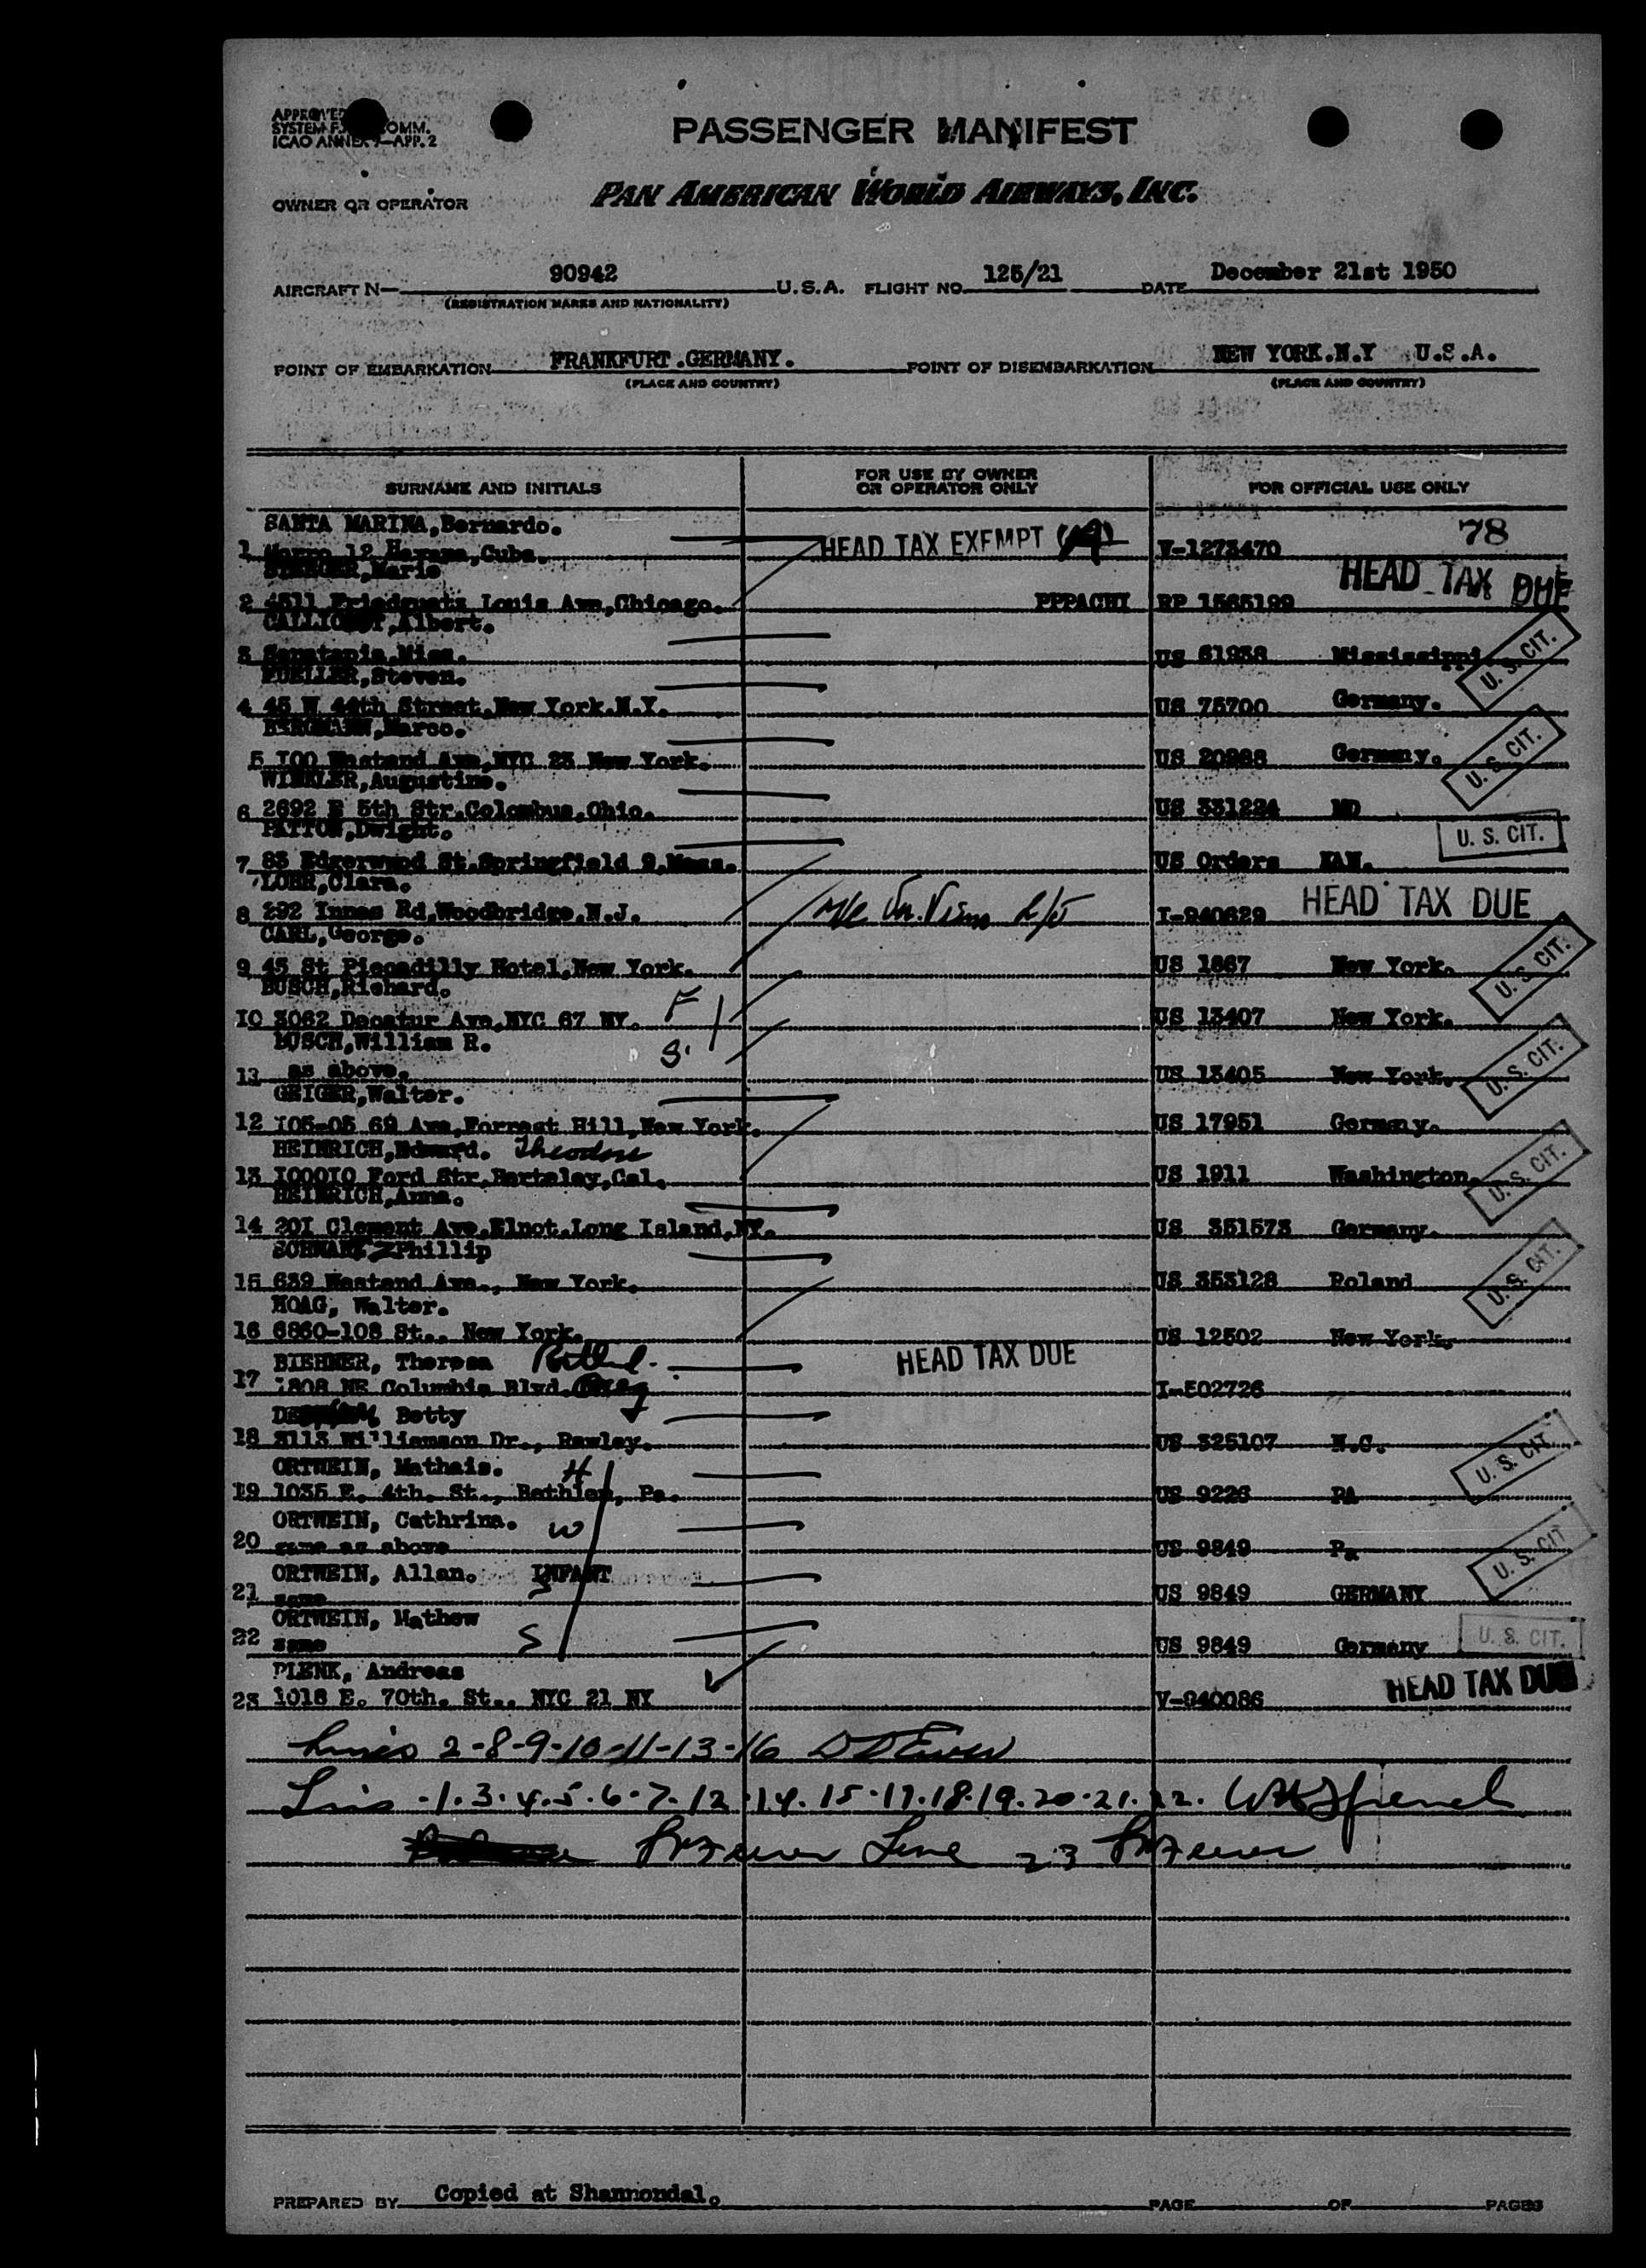 APPROVED
SYSTEM F. COMM.
ICAO ANNEX 9—APP. 2
PASSENGER MANIFEST
OWNER OR OPERATOR
PAN AMERICAN WORLD AIRWAYS, INC.
AIRCRAFT N— 90942 U.S.A. FLIGHT NO. 125/21 DATE December 21st 1950
(REGISTRATION MARKS AND NATIONALITY)
POINT OF EMBARKATION FRANKFURT.GERMANY. POINT OF DISEMBARKATION NEW YORK.N.Y U.S.A.
(PLACE AND COUNTRY) (PLACE AND COUNTRY)
SURNAME AND INITIALS FOR USE BY OWNER OR OPERATOR ONLY FOR OFFICIAL USE ONLY
SANTA MARINA,Bernardo. 78
1 Morro 12 Havana,Cuba. HEAD TAX EXEMPT V-1273470
Marie HEAD TAX DUE
2 4511 Louis Ave,Chicago. PPPACHI RP 1565199
Albert.
3 Miss. US 61938 Mississippi U. S. CIT.
FUELLER,Steven.
4 45 W 44th Street,New York.N.Y. US 75700 Germany.
BERGMANN,Marco.
5 100 Westend Ave,NYC 23 New York. US 20988 Germany. U. S. CIT.
WINKLER,Augustine.
6 2692 E 5th Str.Colombus,Ohio. US 331224 MO
PATTON,Dwight.
7 83 Edgerwood St.Springfield 9,Mass. US Orders KAN. U. S. CIT.
LOHR,Clara.
8 292 Innes Rd,Woodbridge,N.J. I-940629 HEAD TAX DUE
CARL,George.
9 45 St Piccadilly Hotel,New York. US 1867 New York. U. S. CIT.
BUSCH,Richard.
10 3062 Decatur Ave,NYC 67 NY. F US 13407 New York.
BUSCH,William R. S.
13 as above. US 13405 New York. U. S. CIT.
GEIGER,Walter.
12 105-05 69 Ave,Forrest Hill,New York. US 17951 Germany.
HEINRICH,Edward. Theodore
13 100010 Ford Str,Bartelay,Cal. US 1911 Washington. U. S. CIT.
HEINRICH,Anna.
14 201 Clement Ave,Elnot.Long Island,NY. US 351573 Germany.
SCHWARTZ Phillip
15 639 Westend Ave., New York. US 353128 Poland U. S. CIT.
HOAG, Walter.
16 6860-108 St.. New York. US 12502 New York.
BIEHNER, Theresa HEAD TAX DUE
17 1808 NE Columbia Blvd. I-502726
Betty
18 3113 Williamson Dr., Rawley. US 325107 N.C. U. S. CIT.
ORTWEIN, Mathais. H
19 1035 E. 4th. St., Bethlem, Pa. US 9226 PA
ORTWEIN, Cathrina. W
20 same as above US 9849 Pa U. S. CIT
ORTWEIN, Allan. INFANT
21 same S US 9849 GERMANY
ORTWEIN, Mathew
22 same S US 9849 Germany U. S. CIT.
PLENK, Andreas
23 1018 E. 70th. St.. NYC 21 NY V-940086 HEAD TAX DUE
Lines 2-8-9-10-11-13-16
Lines -1.3.4.5.6.7.12.14.15.17.18.19.20.21.22.
Line 23
PREPARED BY Copied at Shannondal. PAGE OF PAGES